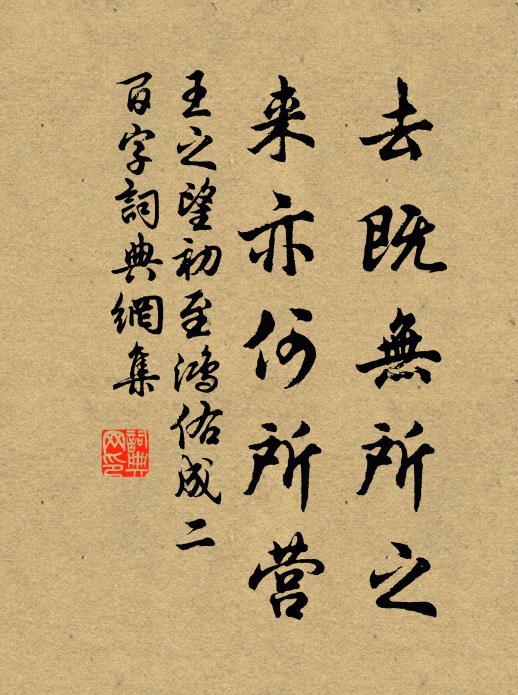 去既無所之
来亦何所营
王之望初至鴻佑成二
百字詞典網集
詞典
网印